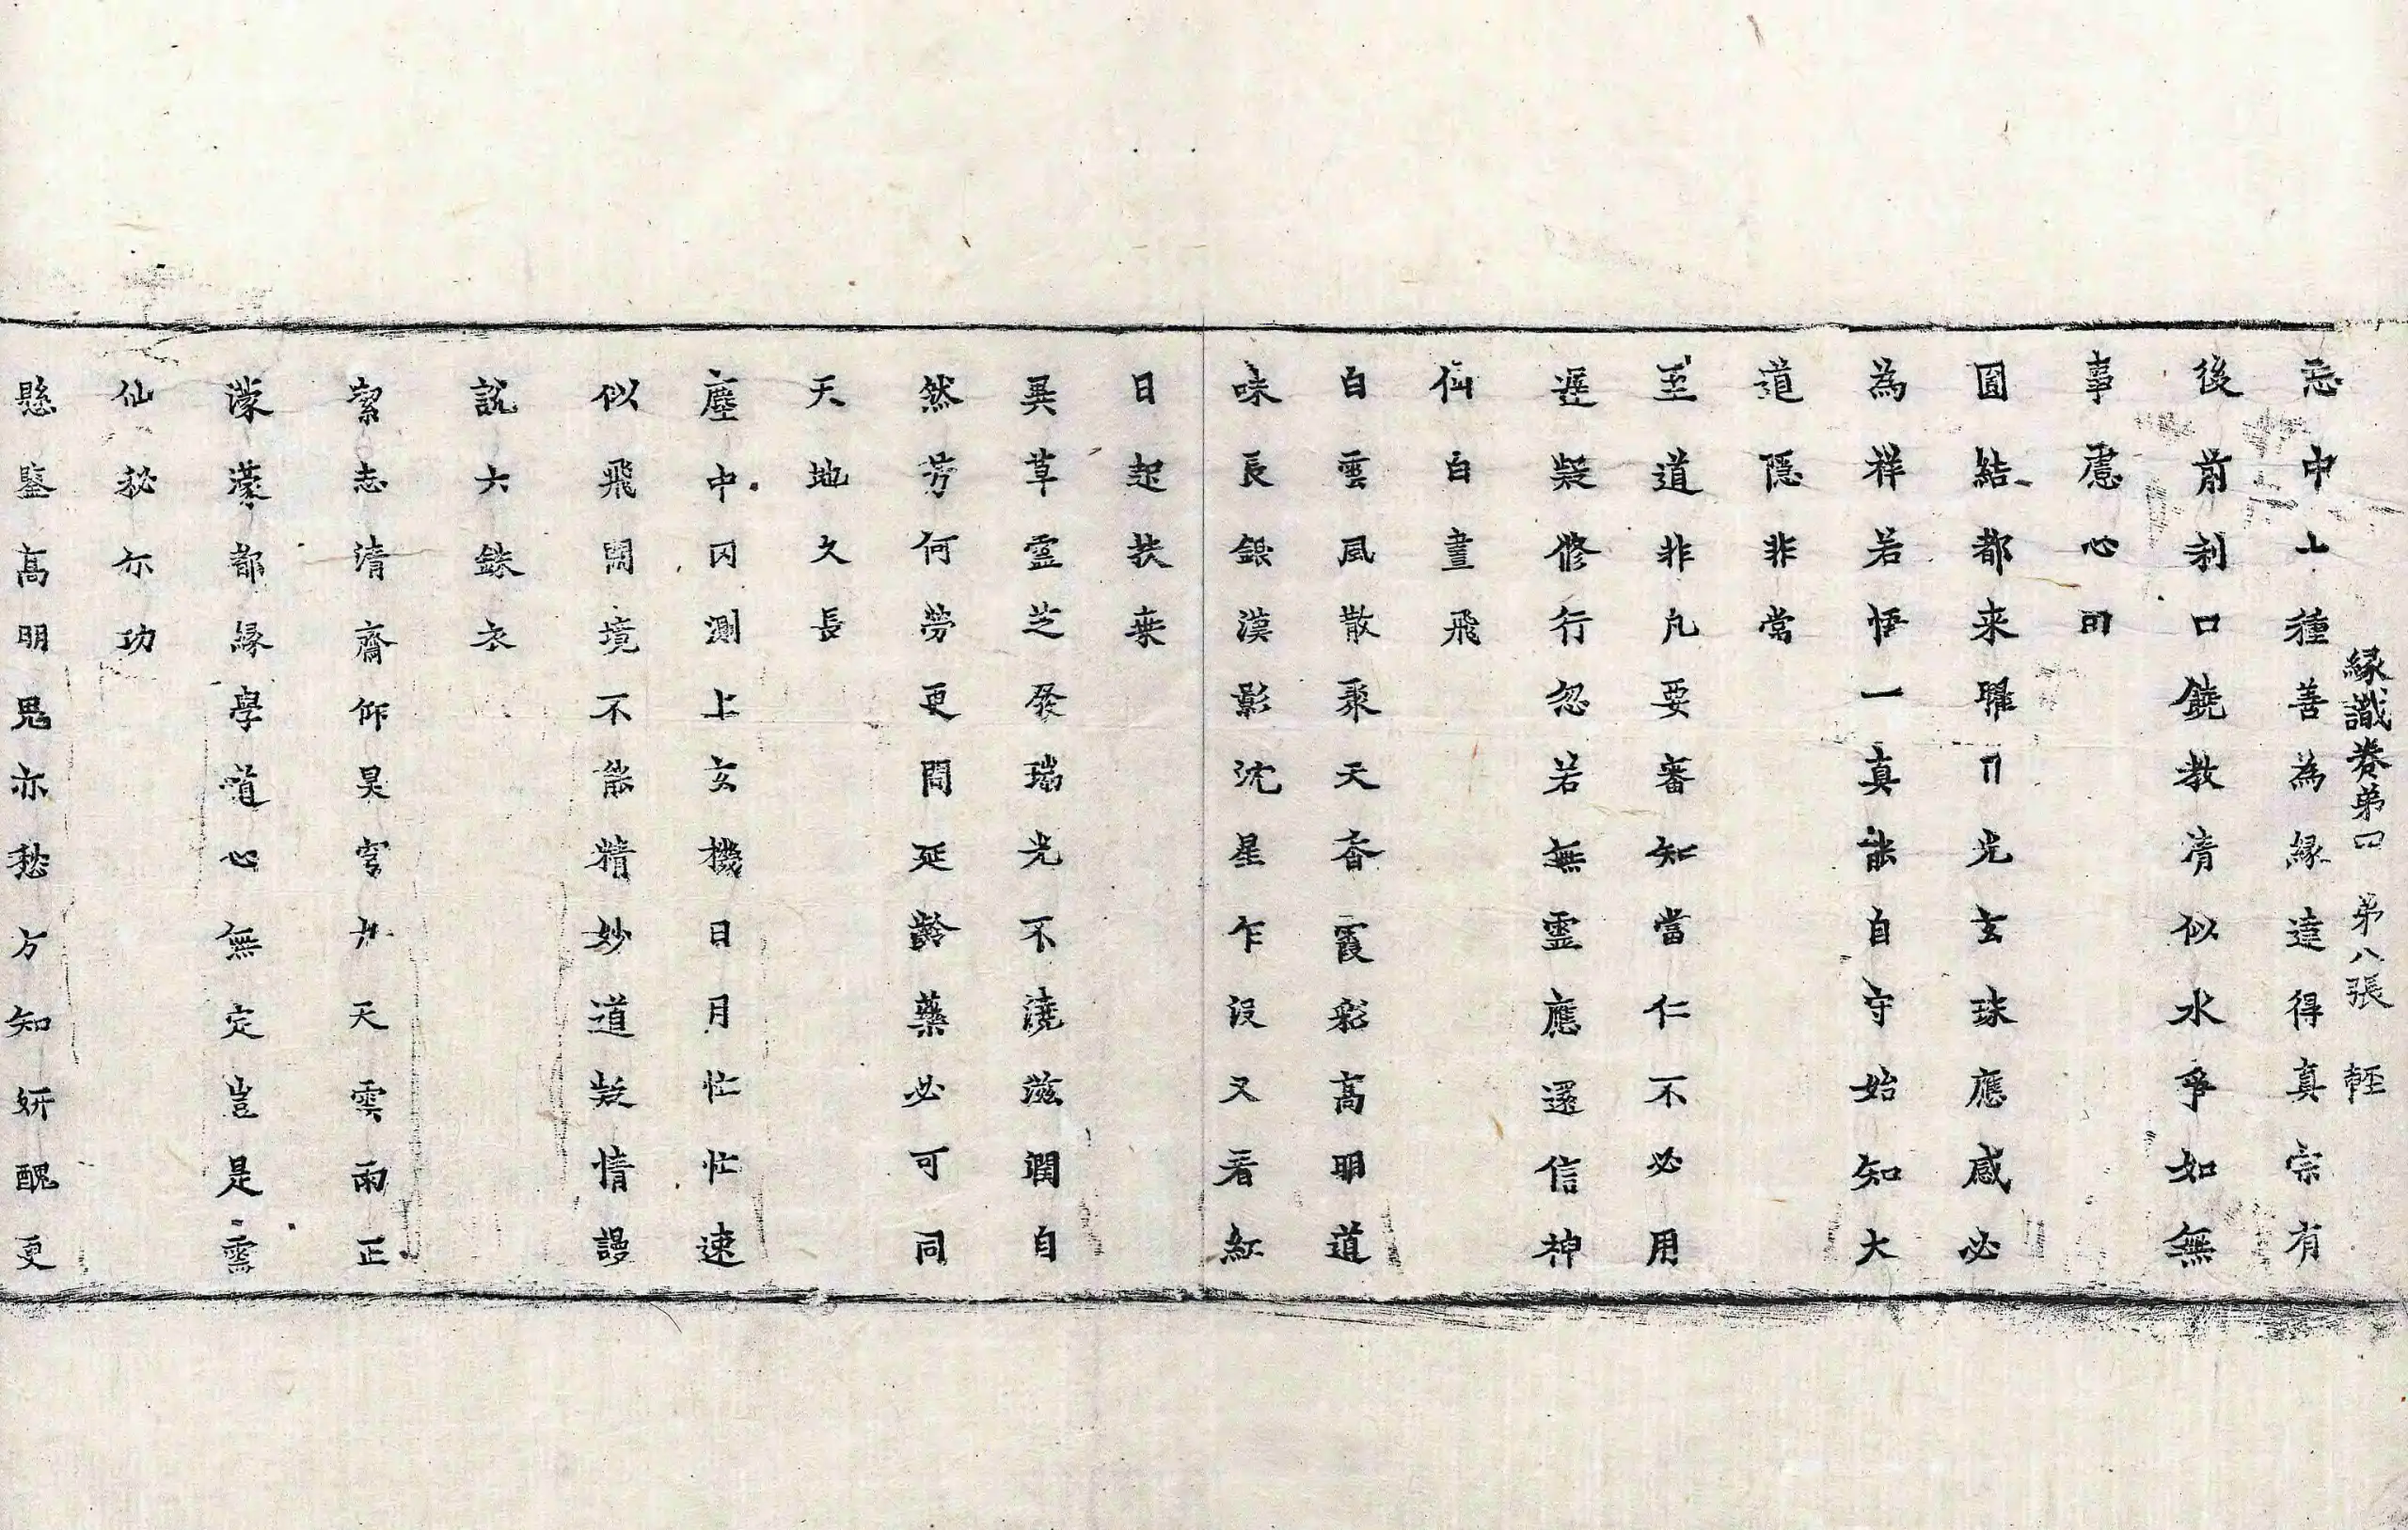 緣識卷第四 第八張 輕
忘中上種善為緣達得真宗有
後前利口饒教清似水爭如無
事慮心田
圓結都来耀日光玄珠應感必
為祥若悟一真能自守始知大
道隱非常
至道非凡要審知當仁不必用
遲疑修行忽若無靈應還信神
仙白晝飛
白雲風散聚天香霞彩高明道
味長銀漢影沈星乍沒又看紅
日起扶桒
異草靈芝發瑞光不澆滋潤自
然芳何勞更問延齡藥必可同
天地久長
塵中囚測上玄機日月忙忙速
似飛閑境不能精妙道疑情謾
說六銖衣
絜志清齋仰昊穹九天雲雨正
濛濛都緣學道心無定豈是靈
仙秘亦功
懸鑒高明鬼亦愁方知妍醜更